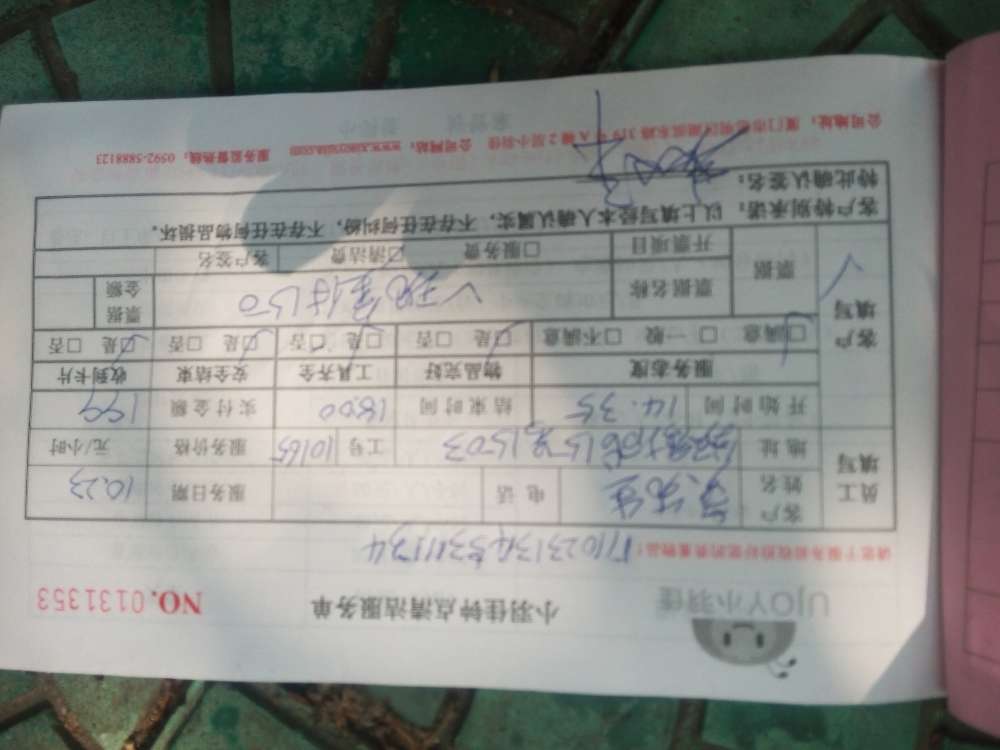 UJOY小羽佳 小羽佳钟点清洁服务单 NO.0131353
请您于服务前收拾好您的贵重物品!
员工填写 客户姓名 先生 电话 服务日期 10.23
地址 1503 工号 10165 服务价格 元/小时
开始时间 14.35 结束时间 18:00 实付金额 199
客户填写 服务态度 物品完好 工具齐全 安全结束 收到卡片
□满意 □一般 □不满意 □是 □否 □是 □否 □是 □否 □是 □否
票据 票据名称 现金付150 票据金额
开票项目 □服务费 □清洁费 客户签名
客户特别承诺:以上填写经本人确认属实,不存在任何纠纷,不存在任何物品损坏。
特此确认签名:
公司地址:厦门市思明区 319号 2层小羽佳 公司网站: 服务监督热线:0592-5888123